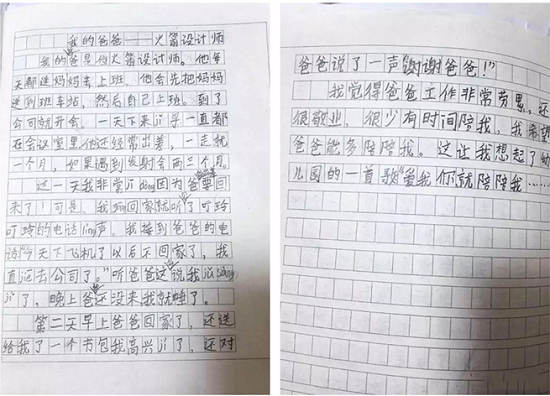 我的爸爸——火箭设计师
我的爸是位火箭设计师。他每
天都送妈妈去上班，他会先把妈妈
送到班车站，然后自己上班。到了
公司就开会。一天下来jī乎一直都
在会议室里。他还经常出差，一走就
一个月，如果遇到发射会两三个月。
这一天我非常jī dòng因为爸爸要回
来了！可是、我gāng回家就听了叮玲
叮玲的电话líng声。我接到爸爸的电
话“今天下飞机了以后不回家了，我
直 去公司了。”听爸爸这 说我 
jí了，晚上爸还没来我就睡了。
第二天早上爸爸回家了，还送
给我了一个书包我高兴jí了，还对
爸爸说了一声谢谢爸爸！”
我觉得爸爸工作非常劳累，还
很敬业，很少有时间陪我，我希望
爸爸能多陪陪我。这让我想起了幼
儿园的一首歌“爱我你就陪陪我……